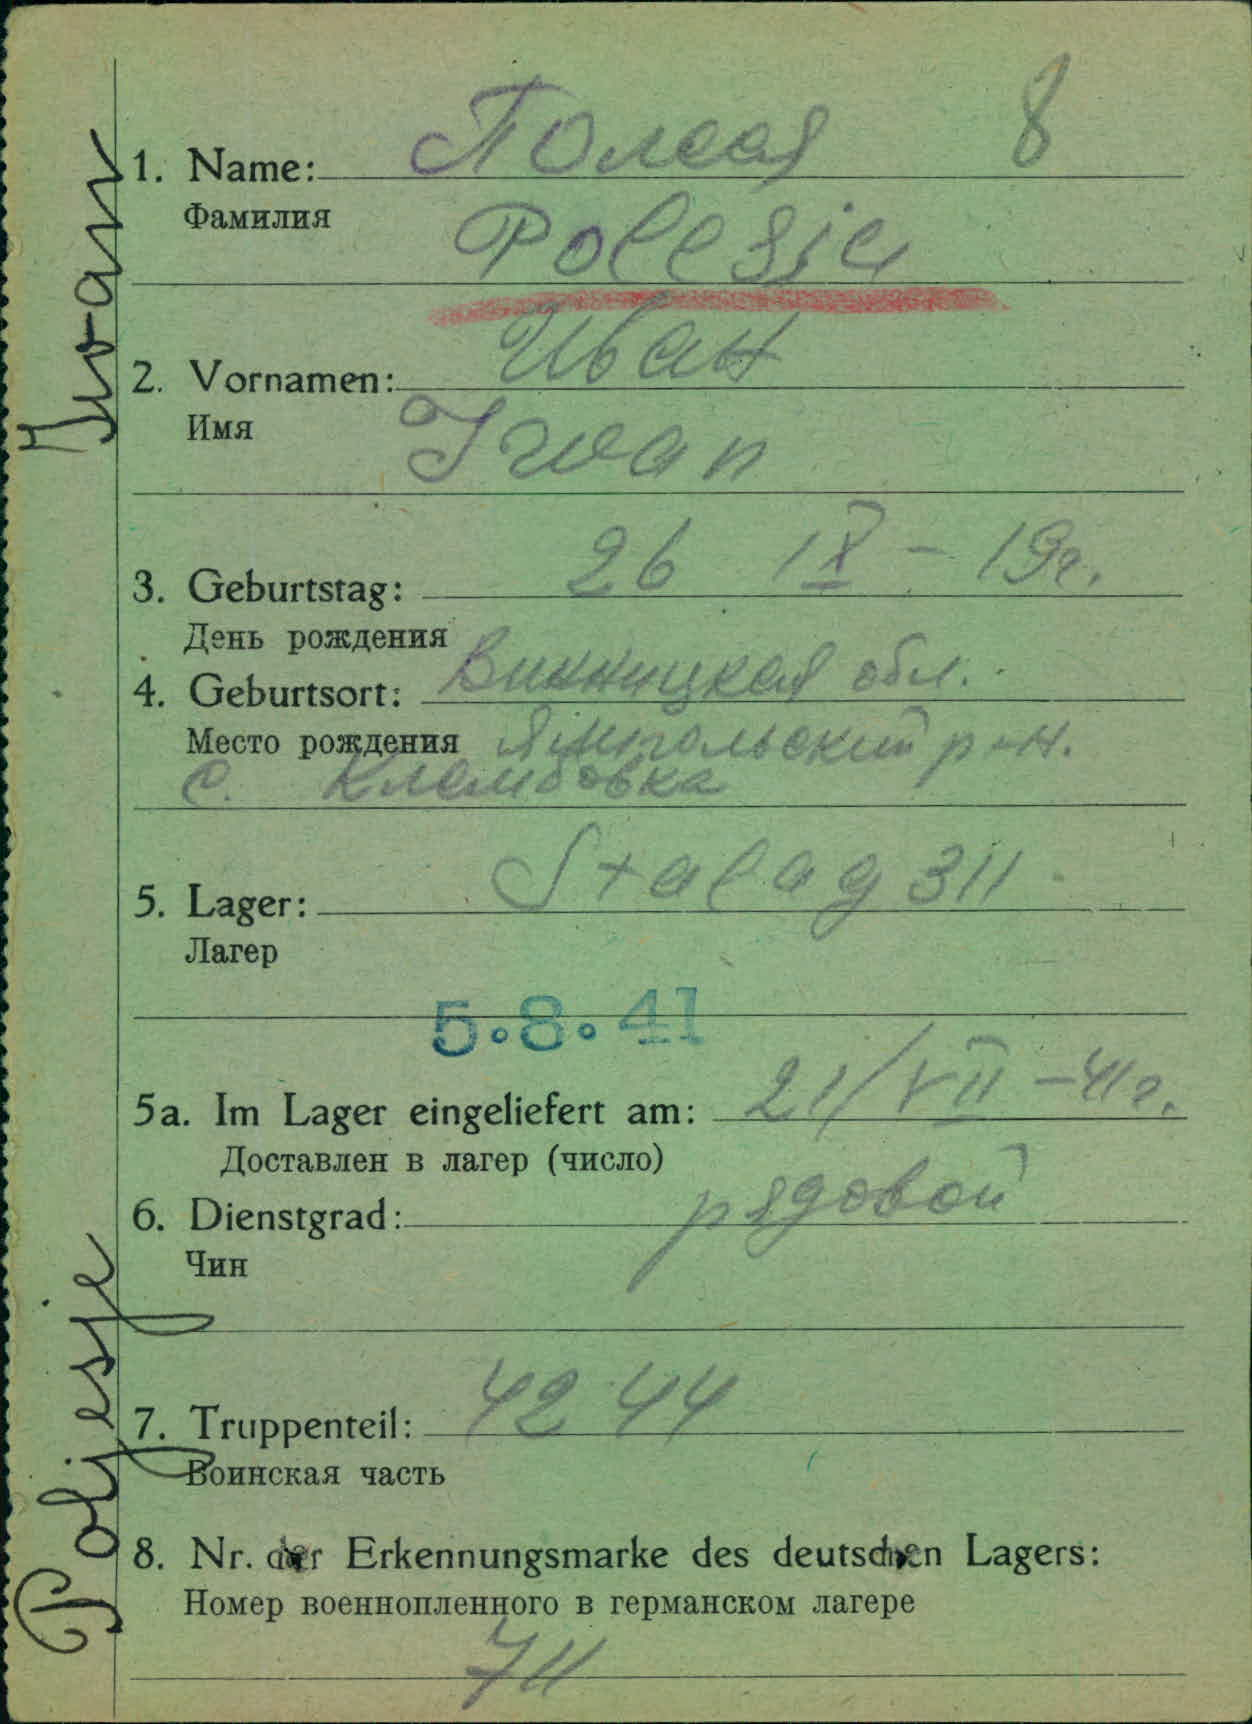 8
1. Name: Полеся
Фамилия
Polesje
2. Vornamen: Иван
Имя
Iwan
3. Geburtstag: 26 IX - 19г.
День рождения
4. Geburtsort: Винницкая обл.
Место рождения Ямпольский р-н.
с. Клембовка
5. Lager: Stalag 311
Лагер
5.8.41
5a. Im Lager eingeliefert am: 21/VII-41г.
Доставлен в лагер (число)
6. Dienstgrad: рядовой
Чин
7. Truppenteil: 4244
Воинская часть
8. Nr. der Erkennungsmarke des deutschen Lagers:
Номер военнопленного в германском лагере
711
Poljesje Iwan